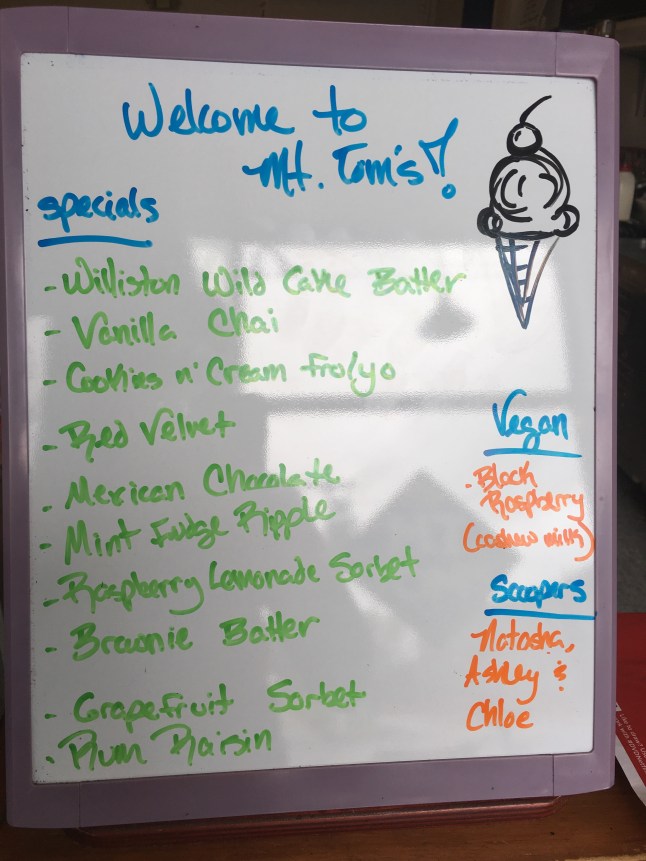 Welcome to
Mt. Tom's!
specials
- Williston Wild Cake Batter
- Vanilla Chai
- Cookies n' Cream fro/yo
- Red Velvet
- Mexican Chocolate
- Mint Fudge Ripple
- Raspberry Lemonade Sorbet
- Brownie Batter
- Grapefruit Sorbet
- Rum Raisin
Vegan
- Black
Raspberry
(cashew milk)
Scoopers
Natasha,
Ashley &
Chloe